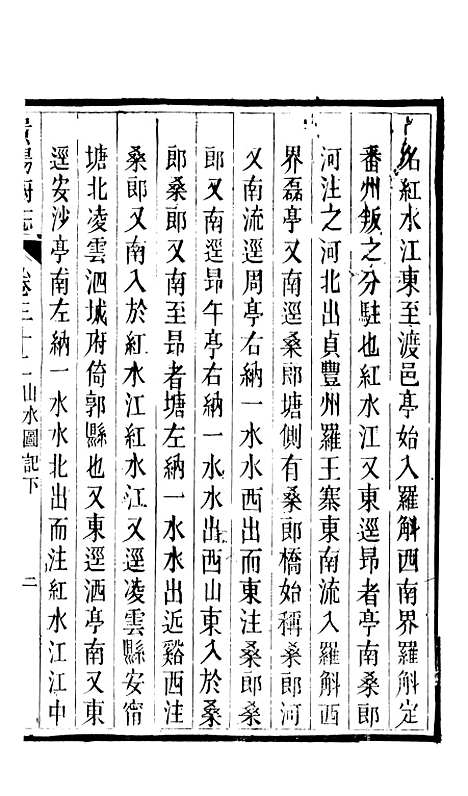 名紅水江東至渡邑亭始入羅斛西南界羅斛定
番州叛之分駐也紅水江又東逕昂者亭南桑郎
河注之河北出貞豐州羅王寨東南流入羅斛西
界磊亭又南逕桑郎塘側有桑郎橋始稱桑郎河
又南流逕周亭右納一水水西出而東注桑郎桑
郎又南逕昂午亭右納一水水出西山東入於桑
郎桑郎又南至昂者塘左納一水水出近谿西注
桑郎又南入於紅水江紅水江又逕凌雲縣安甯
塘北凌雲泗城府倚郭縣也又東逕洒亭南又東
逕安沙亭南左納一水水北出而注紅水江江中
貴陽府志
卷三十二山水圖記下
二